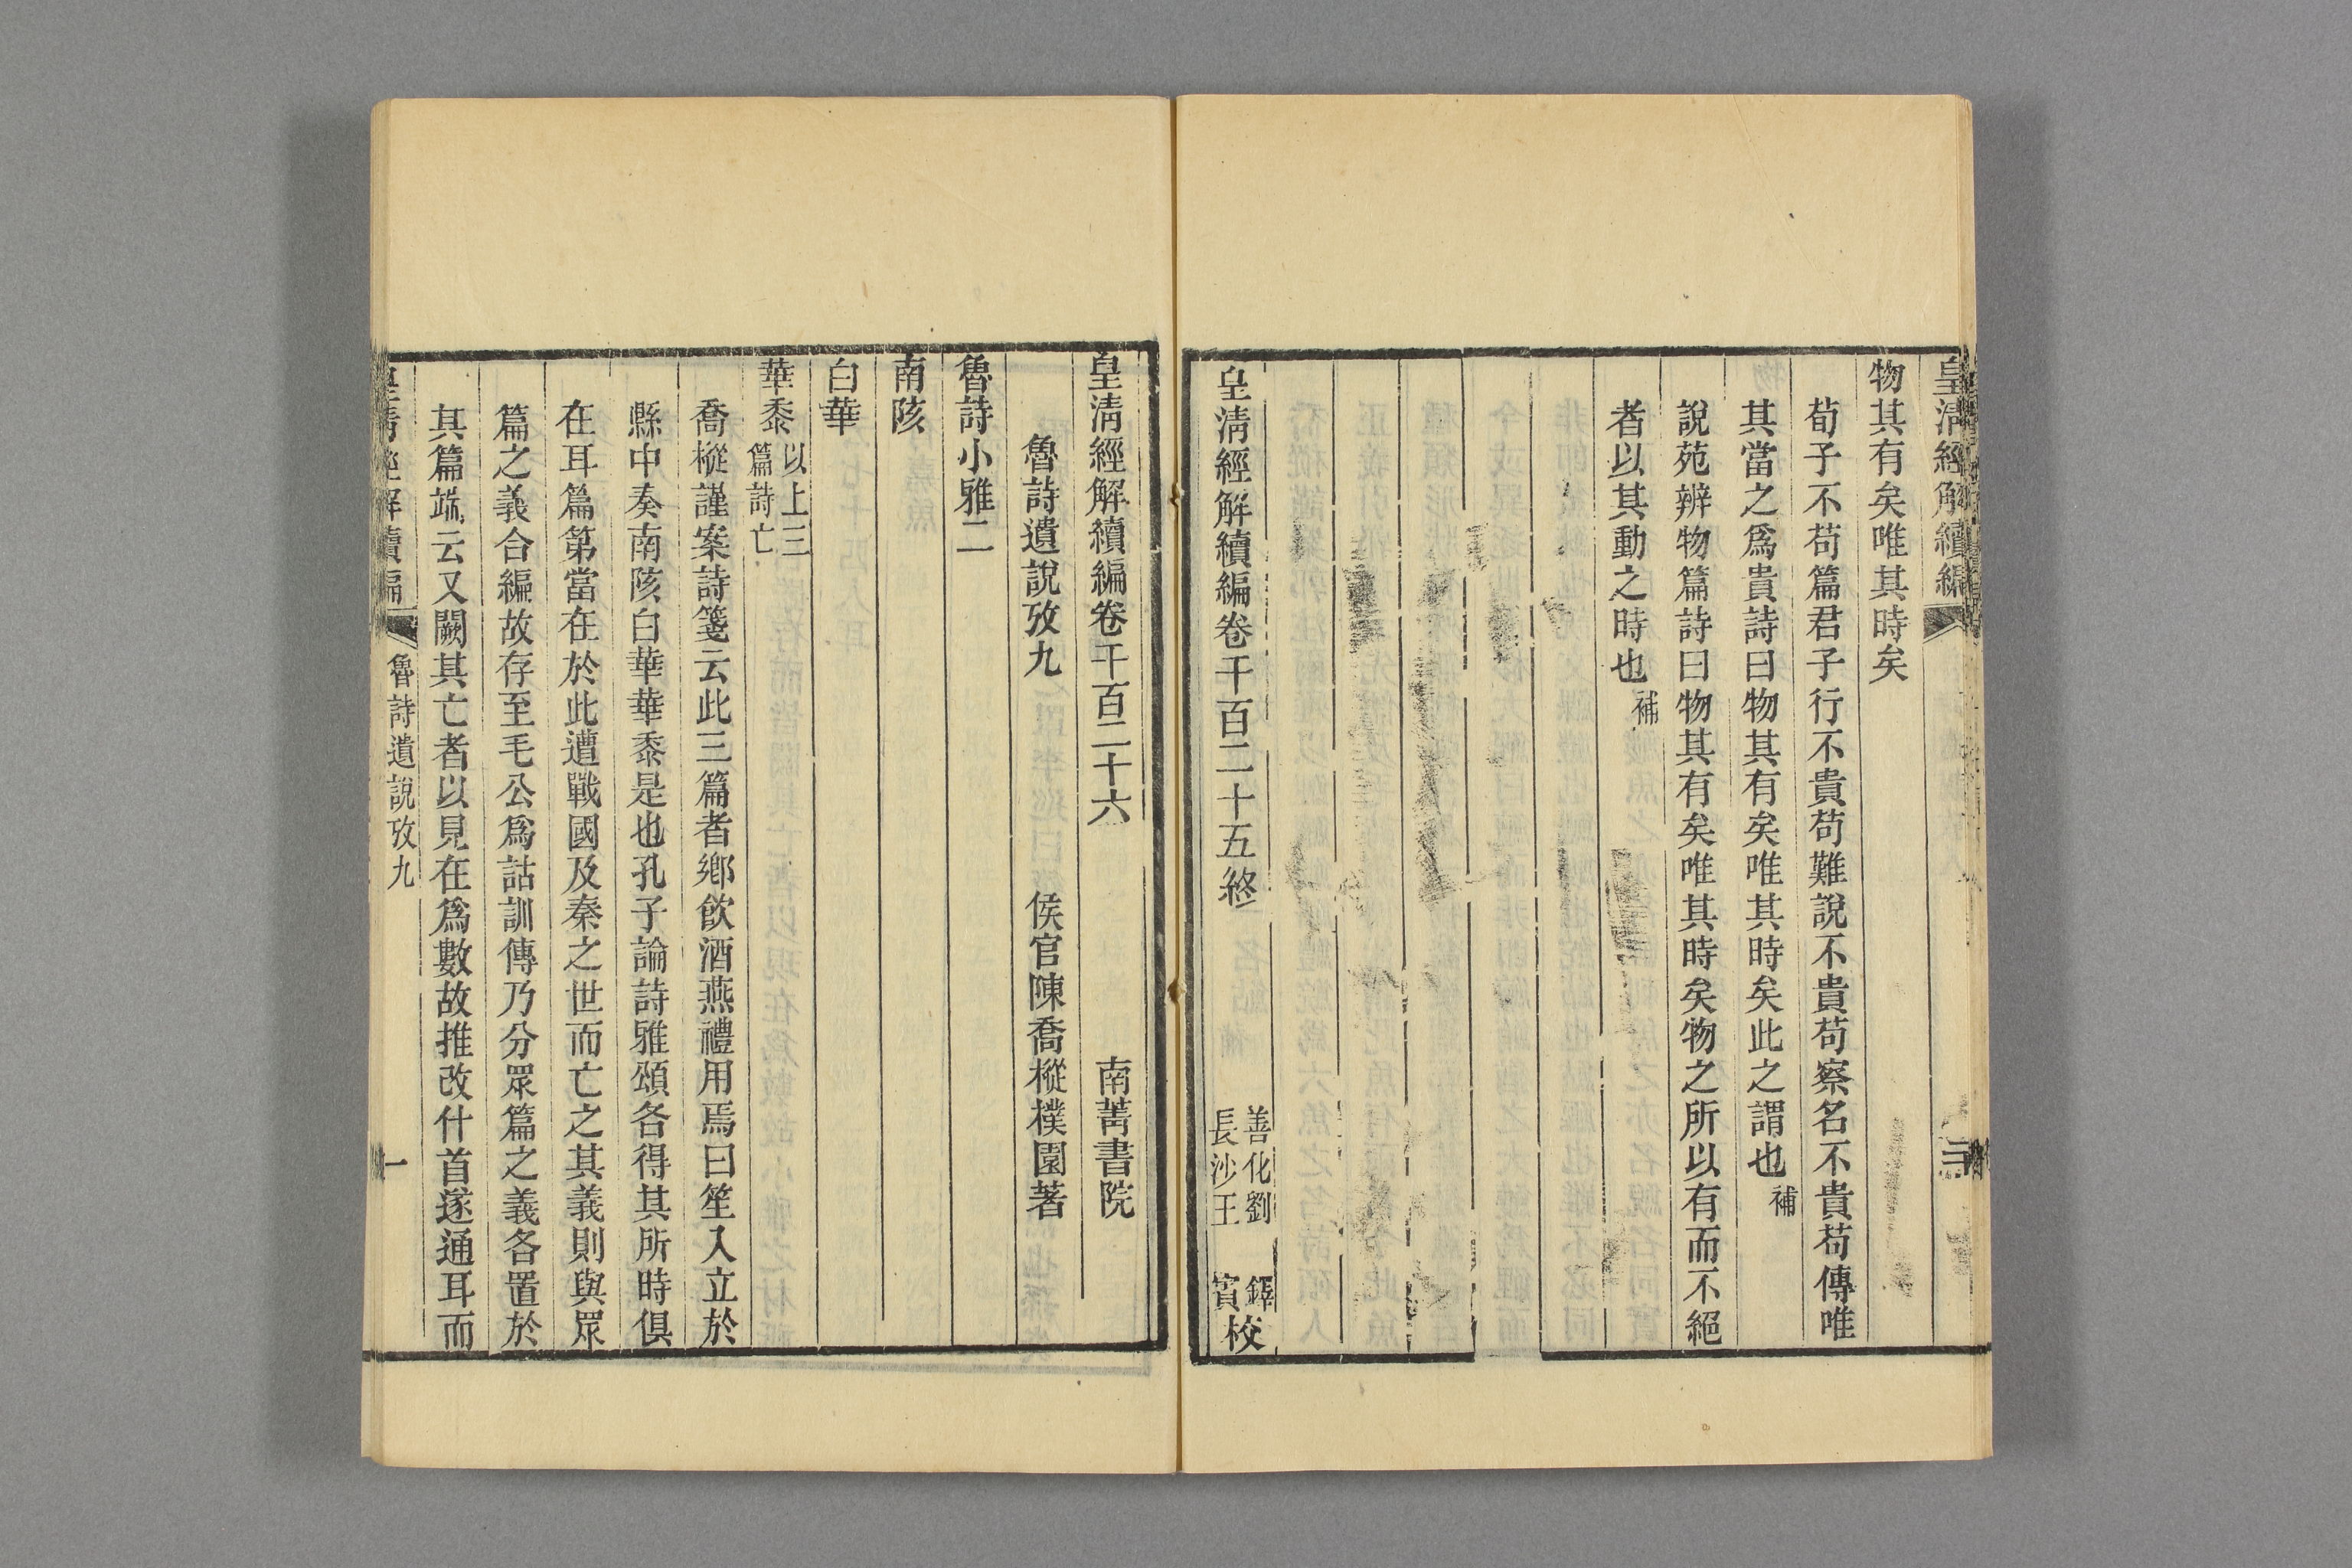 皇清經解續編
物其有矣唯其時矣
荀子不苟篇君子行不貴苟難說不貴苟察名不貴苟傳唯
其當之爲貴詩曰物其有矣唯其時矣此之謂也補
說苑辨物篇詩曰物其有矣唯其時矣物之所以有而不絕
者以其動之時也補
皇清經解續編卷千百二十五終
善化劉鐸
長沙王賓校
皇清經解續編卷千百二十六
南菁書院
魯詩遺說攷九
侯官陳喬樅樸園著
魯詩小雅二
南陔
白華
華黍以上三
篇詩亡
喬樅謹案詩箋云此三篇者鄉飲酒燕禮用焉曰笙入立於
縣中奏南陔白華華黍是也孔子論詩雅頌各得其所時俱
在耳篇第當在於此遭戰國及秦之世而亡之其義則與眾
篇之義合編故存至毛公爲詁訓傳乃分眾篇之義各置於
其篇端云又闕其亡者以見在爲數故推改什首遂通耳而
皇清經解續編
魯詩遺說攷九
一